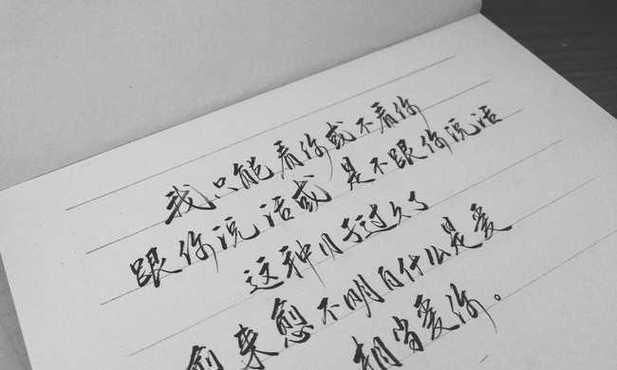 我只能看你或不看你
跟你说话或是不跟你说话
这种日子过久了
愈来愈不明白什么是爱
相当爱你。